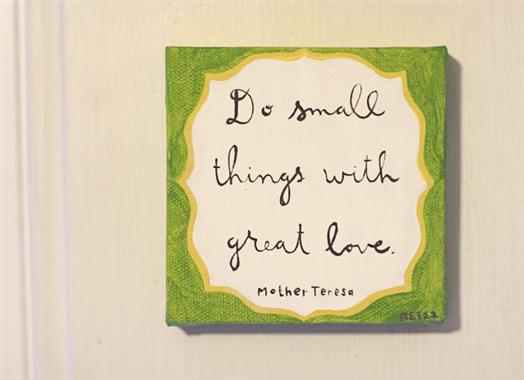 Do small
things with
great love.
Mother Teresa